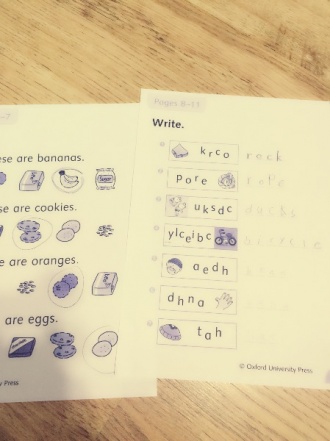 -7
ese are bananas.
se are cookies.
e are oranges.
are eggs.
y Press
Pages 8–11
Write.
krco rock
pore rope
uksdc ducks
ylceibc
aedh
dhna
tah
© Oxford University Press